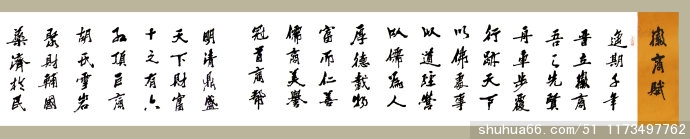 徽商賦
期千年
立徽商
吾之先賢
舟車步履
行跡天下
以佛處事
以道經營
以儒為人
厚德載物
富而仁善
儒商美譽
冠首商幫
明清鼎盛
天下財富
十之有六
紅頂巨商
胡氏雪岩
聚財輔國
藥濟於民
shuhua66.com/51 1173497762